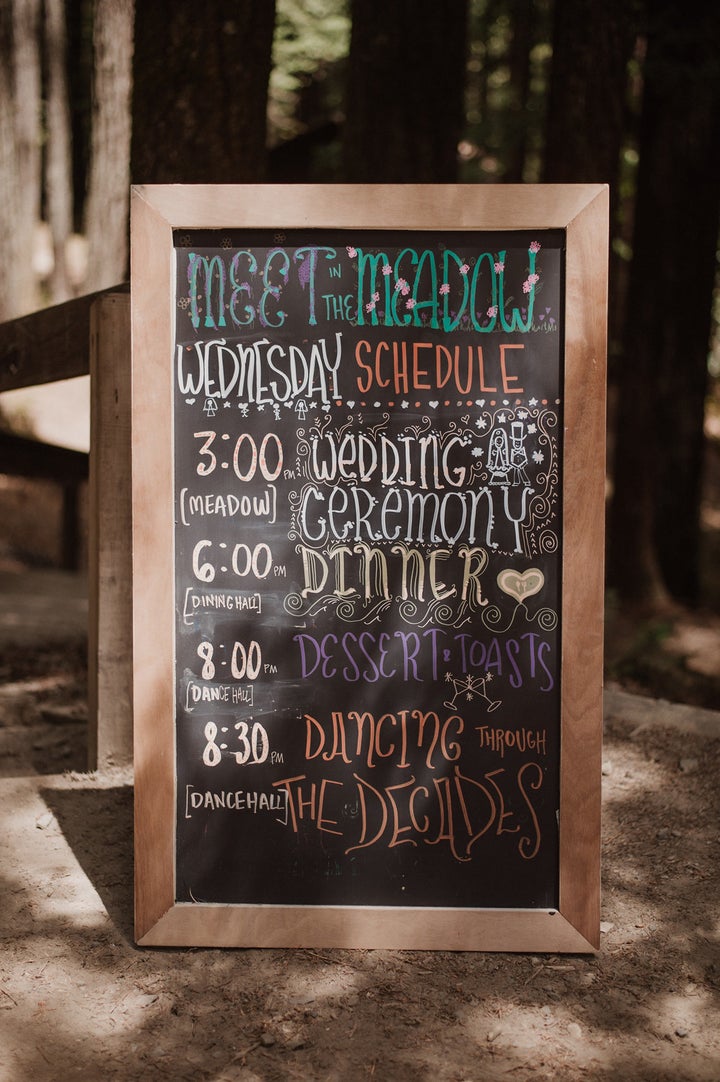 MEET IN THE MEADOW
WEDNESDAY SCHEDULE
3:00 PM WEDDING
[MEADOW] CEREMONY
6:00 PM DINNER
[DINING HALL]
8:00 PM DESSERT & TOASTS
[DANCE HALL]
8:30 PM DANCING THROUGH
[DANCE HALL] THE DECADES